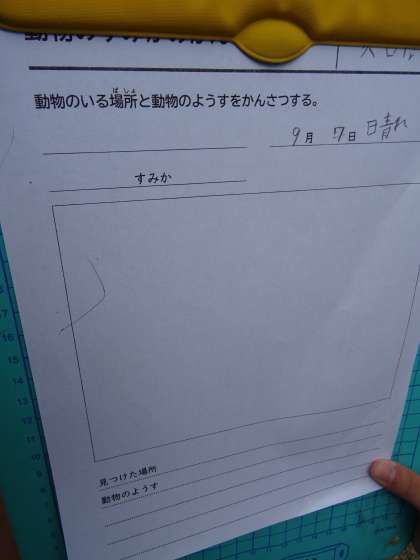 動物のいる場所と動物のようすをかんさつする。
9月 7日 晴れ
すみか
見つけた場所
動物のようす